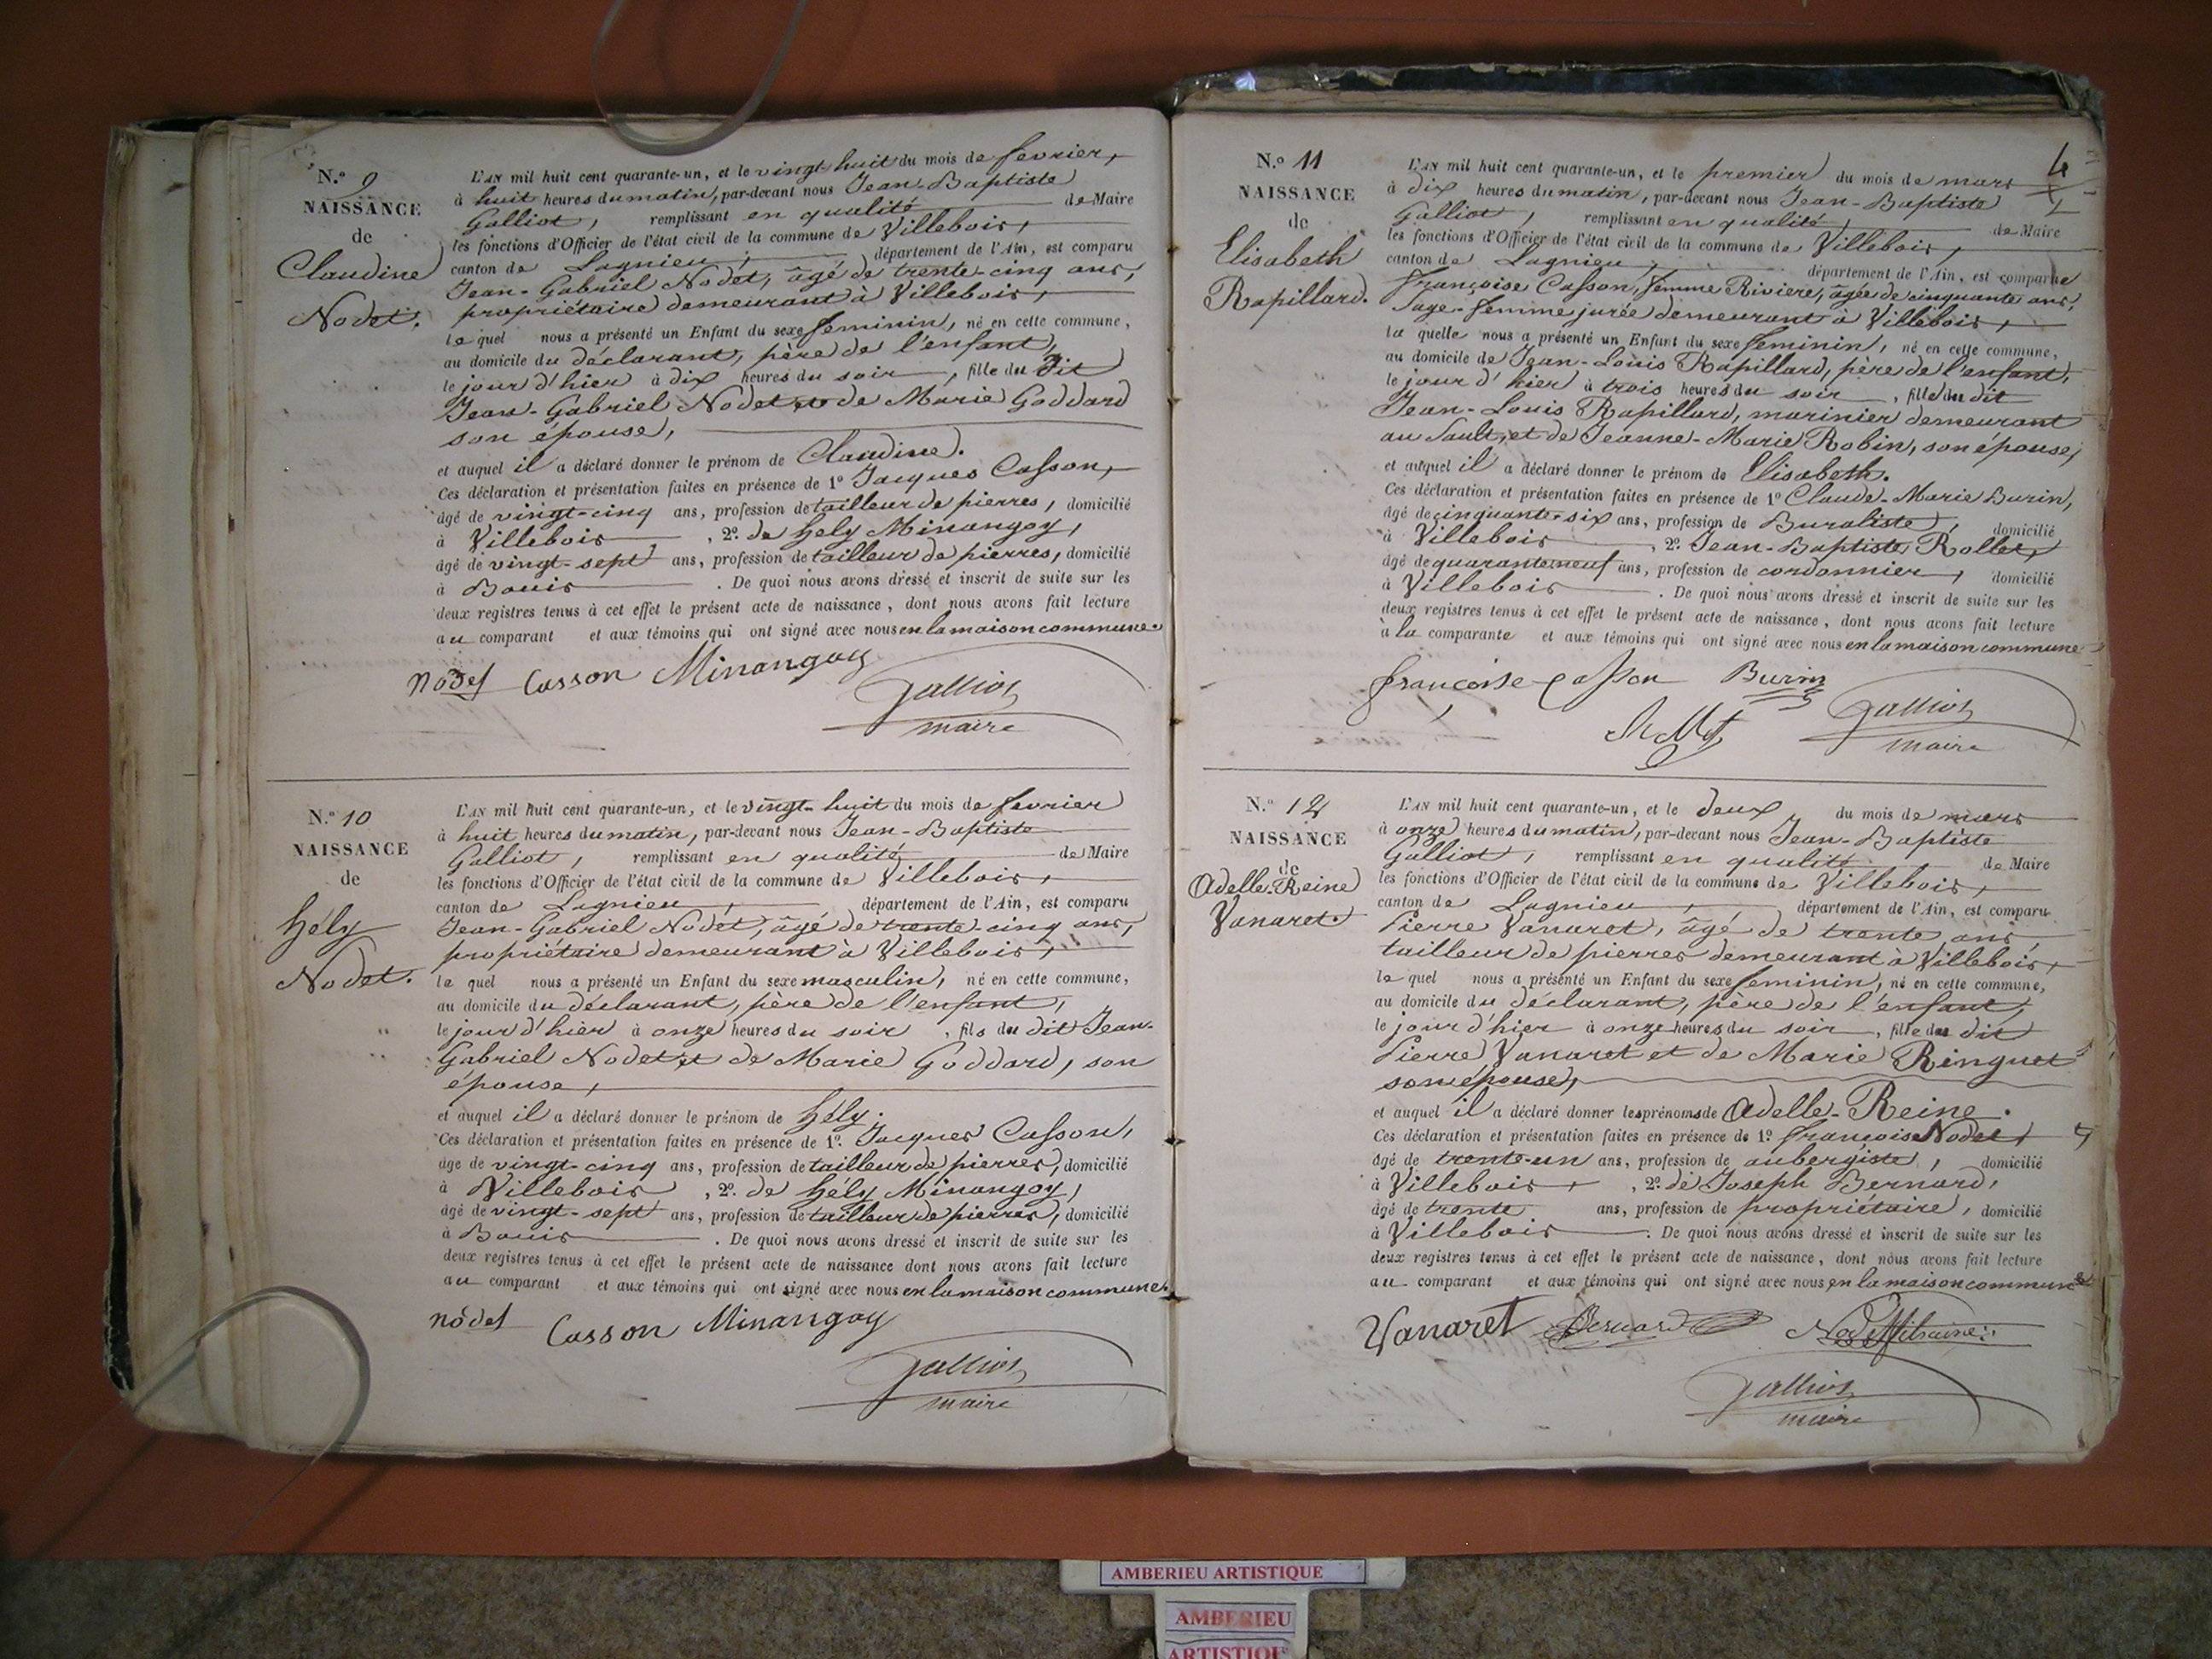 N.º 9
NAISSANCE
de
Claudine
Nodet.
L'AN mil huit cent quarante-un, et le vingt-huit du mois de fevrier,
à huit heures du matin, par-devant nous Jean-Baptiste
Galliot, remplissant en qualité de Maire
les fonctions d'Officier de l'état civil de la commune de Villebois,
canton de Lagnieu, département de l'Ain, est comparu
Jean-Gabriel Nodet, âgé de trente-cinq ans,
propriétaire demeurant à Villebois,
le quel nous a présenté un Enfant du sexe feminin, né en cette commune,
au domicile du déclarant, père de l'enfant,
le jour d'hier à dix heures du soir, fille du dit
Jean-Gabriel Nodet et de Marie Goddard
son épouse,
et auquel il a déclaré donner le prénom de Claudine.
Ces déclaration et présentation faites en présence de 1º Jacques Casson,
âgé de vingt-cinq ans, profession de tailleur de pierres, domicilié
à Villebois, 2º. de hely Minangoy,
âgé de vingt-sept ans, profession de tailleur de pierres, domicilié
à Bouis. De quoi nous avons dressé et inscrit de suite sur les
deux registres tenus à cet effet le présent acte de naissance, dont nous avons fait lecture
au comparant et aux témoins qui ont signé avec nous en la maison commune.
nodet Casson Minangoy
Galliot
maire
N.º 10
NAISSANCE
de
hély
Nodet.
L'AN mil huit cent quarante-un, et le vingt-huit du mois de fevrier
à huit heures du matin, par-devant nous Jean-Baptiste
Galliot, remplissant en qualité de Maire
les fonctions d'Officier de l'état civil de la commune de Villebois,
canton de Lagnieu, département de l'Ain, est comparu
Jean-Gabriel Nodet, âgé de trente-cinq ans,
propriétaire demeurant à Villebois,
le quel nous a présenté un Enfant du sexe masculin, né en cette commune,
au domicile du déclarant, père de l'enfant,
le jour d'hier à onze heures du soir, fils du dit Jean-
Gabriel Nodet et de Marie Goddard, son
épouse,
et auquel il a déclaré donner le prénom de hély.
Ces déclaration et présentation faites en présence de 1º. Jacques Casson,
âgé de vingt-cinq ans, profession de tailleur de pierres, domicilié
à Villebois, 2º. de hély Minangoy,
âgé de vingt-sept ans, profession de tailleur de pierres, domicilié
à Bouis. De quoi nous avons dressé et inscrit de suite sur les
deux registres tenus à cet effet le présent acte de naissance dont nous avons fait lecture
au comparant et aux témoins qui ont signé avec nous en la maison commune.
nodet Casson Minangoy
Galliot
maire
4
N.º 11
NAISSANCE
de
Elisabeth
Rapillard.
L'AN mil huit cent quarante-un, et le premier du mois de mars
à dix heures du matin, par-devant nous Jean-Baptiste
Galliot, remplissant en qualité, de Maire
les fonctions d'Officier de l'état civil de la commune de Villebois,
canton de Lagnieu, département de l'Ain, est comparue
Françoise Casson, femme Riviere, âgée de cinquante ans,
sage-femme jurée demeurant à Villebois,
la quelle nous a présenté un Enfant du sexe feminin, né en cette commune,
au domicile de Jean-Louis Rapillard, père de l'enfant,
le jour d'hier à trois heures du soir, fille du dit
Jean-Louis Rapillard, marinier demeurant
au Sault, et de Jeanne-Marie Robin, son épouse,
et auquel il a déclaré donner le prénom de Elisabeth.
Ces déclaration et présentation faites en présence de 1º Claude-Marie Burin,
âgé de cinquante-six ans, profession de Buraliste, domicilié
à Villebois, 2º. Jean-Baptiste Rollet,
âgé de quarante neuf ans, profession de cordonnier, domicilié
à Villebois. De quoi nous avons dressé et inscrit de suite sur les
deux registres tenus à cet effet le présent acte de naissance, dont nous avons fait lecture
à la comparante et aux témoins qui ont signé avec nous en la maison commune
françoise casson Burin
Galliot
maire
N.º 12
NAISSANCE
de
Adelle-Reine
Vanaret.
L'AN mil huit cent quarante-un, et le deux du mois de mars
à onze heures du matin, par-devant nous Jean-Baptiste
Galliot, remplissant en qualité de Maire
les fonctions d'Officier de l'état civil de la commune de Villebois,
canton de Lagnieu, département de l'Ain, est comparu
Pierre Vanaret, âgé de trente ans,
tailleur de pierres demeurant à Villebois,
le quel nous a présenté un Enfant du sexe feminin, né en cette commune,
au domicile du déclarant, père de l'enfant,
le jour d'hier à onze heures du soir, fille du dit
Pierre Vanaret et de Marie Ringuet
son épouse,
et auquel il a déclaré donner les prénoms de Adelle-Reine.
Ces déclaration et présentation faites en présence de 1º. françois Nodet,
âgé de trente-un ans, profession de aubergiste, domicilié
à Villebois, 2º. de Joseph Bernard,
âgé de trente ans, profession de propriétaire, domicilié
à Villebois. De quoi nous avons dressé et inscrit de suite sur les
deux registres tenus à cet effet le présent acte de naissance, dont nous avons fait lecture
au comparant et aux témoins qui ont signé avec nous en la maison commune
Vanaret Bernard
Galliot
maire
AMBERIEU ARTISTIQUE
AMBERIEU
ARTISTIQUE